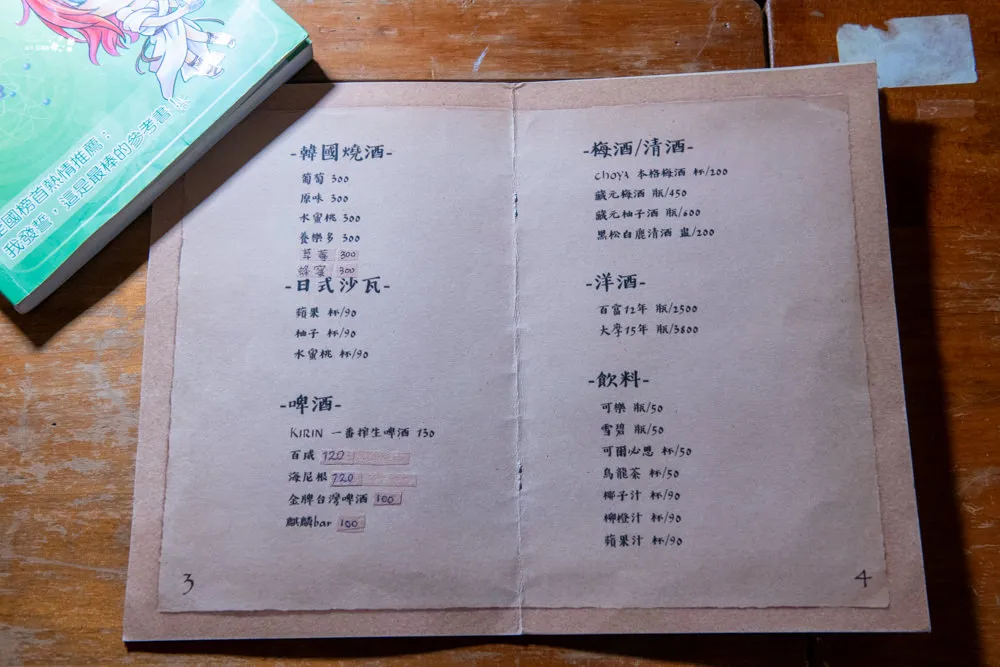 全國榜首熱情推薦：
我發誓，這是最棒的參考書！
-韓國燒酒-
葡萄 300
原味 300
水蜜桃 300
養樂多 300
草莓 300
蜂蜜 300
-日式沙瓦-
蘋果 杯/90
柚子 杯/90
水蜜桃 杯/90
-啤酒-
KIRIN 一番搾生啤酒 130
百威 120
海尼根 120
金牌台灣啤酒 100
麒麟bar 100
3
-梅酒/清酒-
CHOYA 本格梅酒 杯/200
藏元梅酒 瓶/450
藏元柚子酒 瓶/600
黑松白鹿清酒 盅/200
-洋酒-
百富12年 瓶/2500
大摩15年 瓶/3800
-飲料-
可樂 瓶/50
雪碧 瓶/50
可爾必思 杯/50
烏龍茶 杯/50
椰子汁 杯/90
柳橙汁 杯/90
蘋果汁 杯/90
4